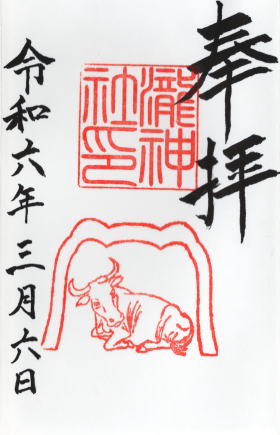 奉拝
瀧神
社印
令和六年三月六日